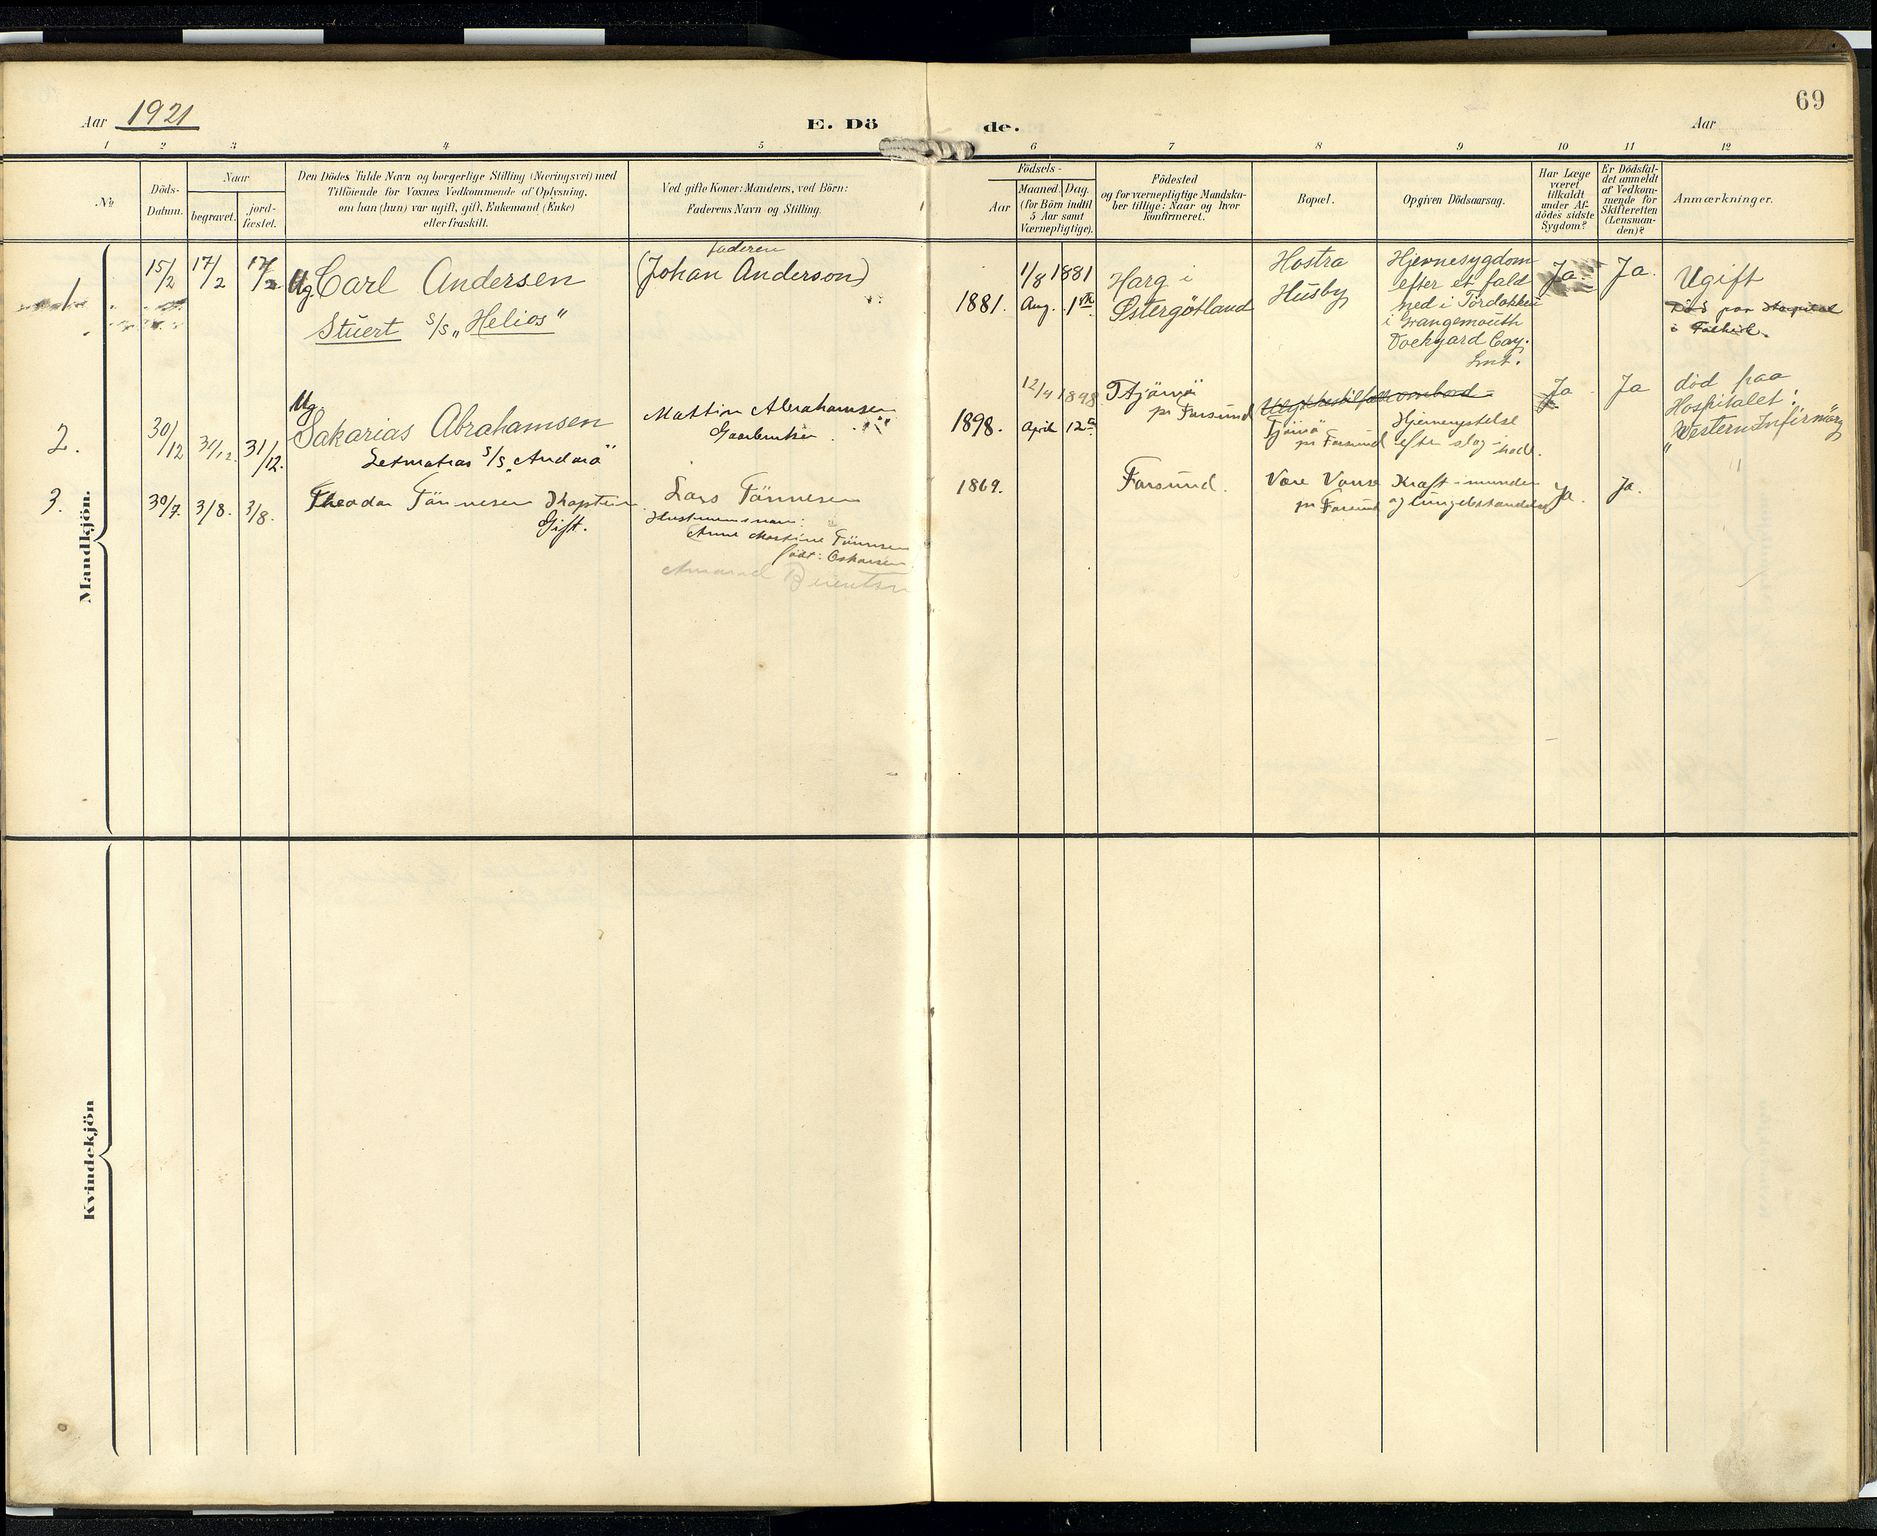 Aar 1921
E. Dö de.
69
Aar
1 2 3 4 5 6 7 8 9 10 11 12
No
Döds-
Datum.
Naar
begravet.
jord-
fæstet.
Den Dödes fulde Navn og borgerlige Stilling (Næringsvei) med
Tilföiende for Voxnes Vedkommende af Oplysning,
om han (hun) var ugift, gift, Enkemand (Enke)
eller fraskilt.
Ved gifte Koner: Mandens, ved Börn:
Faderens Navn og Stilling.
Födsels-
Aar
Maaned. Dag.
(for Börn indtil
5 Aar samt
Værnepligtige).
Födested
og for værnepligtige Mandska-
ber tillige: Naar og hvor
konfirmeret.
Bopæl.
Opgiven Dödsaarsag.
Har Læge
været
tilkaldt
under Af-
dödes sidste
Sygdom?
Er Dödsfal-
det anmeldt
af Vedkom-
mende for
Skifteretten
(Lensman-
den)?
Anmærkninger.
Mandkjön.
1
15/2
17/2
17/2
Ug Carl Andersen
Stuert S/S „Helios"
Faderen
(Johan Anderson)
1881.
1/8 1881
Aug. 1st
Harg i
Östergötland
Hostra
Husby
Hjernesygdom
efter et fald
ned i Tördokken
i Grangemouth
Dockyard Coy.
Lmt.
Ja.
Ja.
Ugift
Död paa Hospital
i Falkirk.
2.
30/12
31/12.
31/12.
Ug
Sakarias Abrahamsen
Letmatros S/S „Andorö"
Mattin Abrahamsen
Gaardbruker
1898.
12/4 1898
April 12
pr Farsund
Ulykkestilfælle ombord
pr Farsund
Hjernerystelse
efter slag i hode.
Ja
Ja
död fraa
Hospitalet:
„Western Infirmary
3.
30/7.
3/8.
3/8.
Theodor Tönnesen Kaptein
Gift.
Lars Tönnesen
Hustruens navn:
Anne Martine Tönnesen
födt: Oskarsen
1869.
Farsund.
Vere Vanse
pr Farsund
Kræft i munden
og
Ja.
Ja.
Kvindekjön